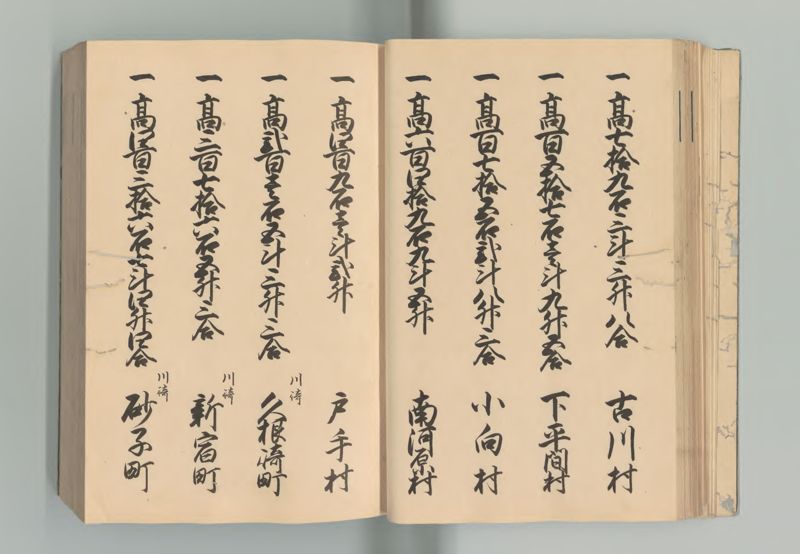 一 高七拾九石三斗三升八合 古川村
一 高百五拾七石壱斗九升五合 下平間村
一 高百七拾五石弐斗八升三合 小向村
一 高六百四拾九石九斗五升 南河原村
一 高四百九石壱斗弐升 戸手村
一 高弐百壱石五斗三升三合 川崎 久根崎町
一 高三百七拾六石五升三合 川崎 新宿町
一 高四百三拾六石七斗四升四合 川崎 砂子町